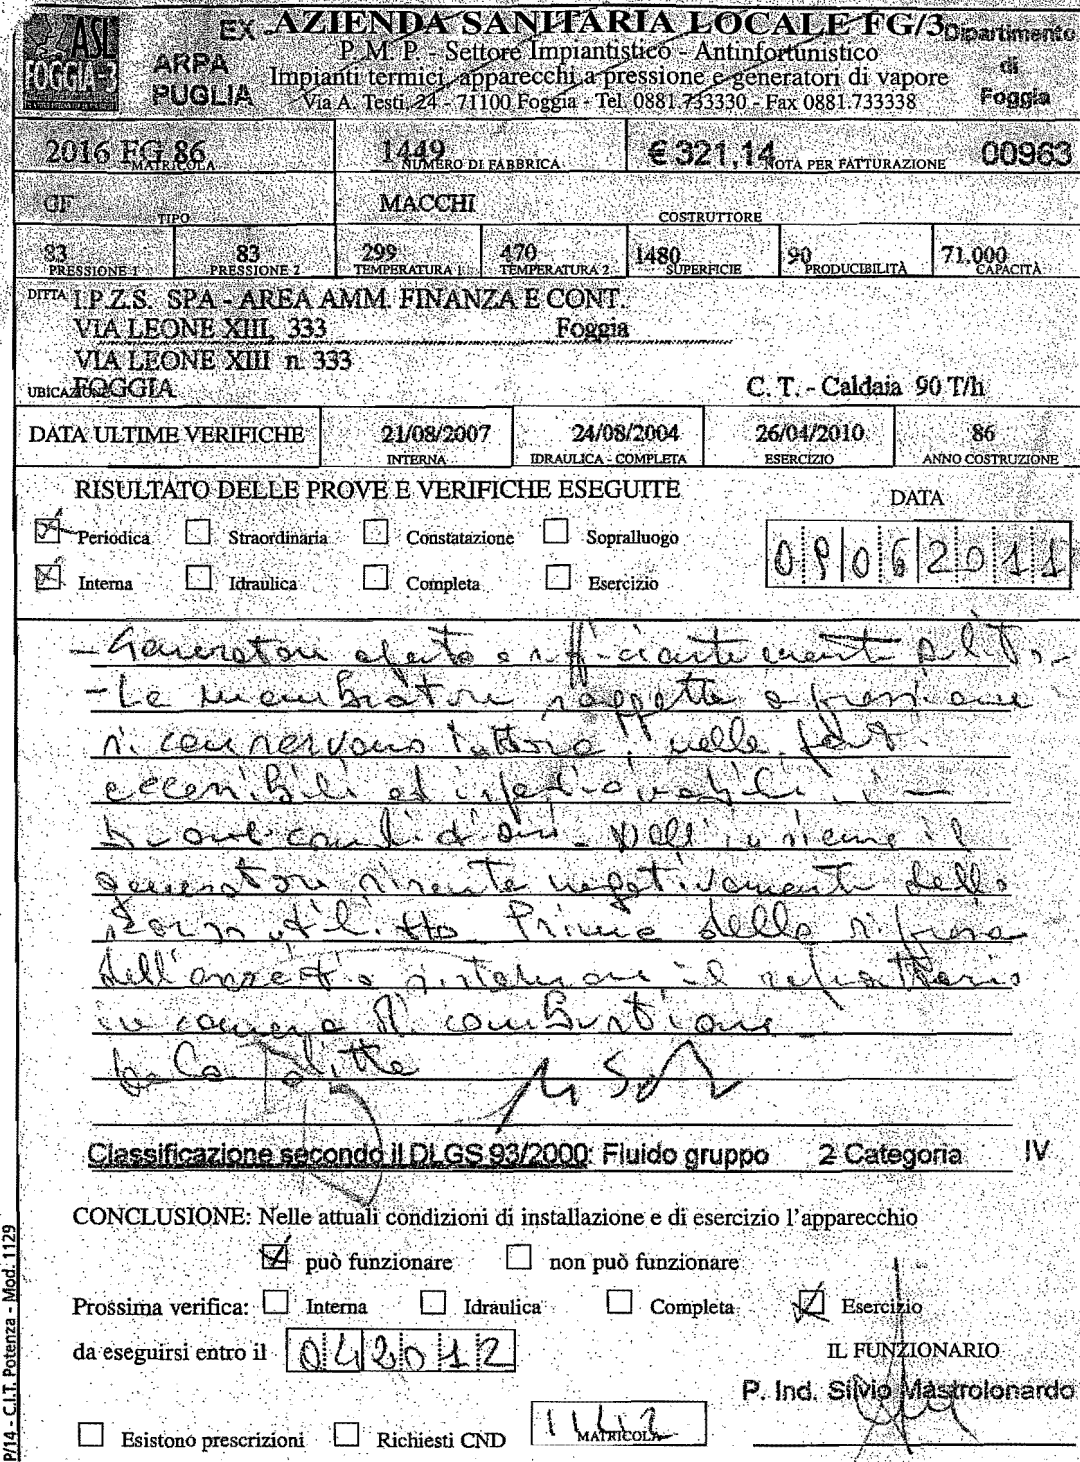 ASL
FOGGIA-3
EX AZIENDA SANITARIA LOCALE FG/3
ARPA PUGLIA
Dipartimento di Foggia
P. M. P. - Settore Impiantistico - Antinfortunistico
Impianti termici, apparecchi a pressione e generatori di vapore
Via A. Testi, 24 - 71100 Foggia - Tel. 0881.733330 - Fax 0881.733338
2016 FG 86 1449 € 321,14 00963
MATRICOLA NUMERO DI FABBRICA NOTA PER FATTURAZIONE
GF MACCHI
TIPO COSTRUTTORE
83 83 299 470 1480 90 71,000
PRESSIONE 1 PRESSIONE 2 TEMPERATURA 1 TEMPERATURA 2 SUPERFICIE PRODUCIBILITÀ CAPACITÀ
DITTA I.P.Z.S. SPA - AREA AMM. FINANZA E CONT.
VIA LEONE XIII, 333 Foggia
VIA LEONE XIII n. 333
UBICAZIONE FOGGIA C. T. - Caldaia 90 T/h
DATA ULTIME VERIFICHE 21/08/2007 24/08/2004 26/04/2010 86
INTERNA IDRAULICA - COMPLETA ESERCIZIO ANNO COSTRUZIONE
RISULTATO DELLE PROVE E VERIFICHE ESEGUITE DATA
Periodica Straordinaria Constatazione Sopralluogo
09062011
Interna Idraulica Completa Esercizio
- Generatore aperto e sufficientemente pulito -
- Le membrature soggette a pressione
si conservano tuttora, nelle parti
accessibili ed ispezionabili, in
buone condizioni. Nell'insieme il
generatore risente negativamente dello
scarso utilizzo. Prima della ripresa
dell'esercizio ristabilire il refrattario
in camera di combustione
La Ditta
Classificazione secondo il DLGS 93/2000: Fluido gruppo 2 Categoria IV
CONCLUSIONE: Nelle attuali condizioni di installazione e di esercizio l'apparecchio
può funzionare non può funzionare
Prossima verifica: Interna Idraulica Completa Esercizio
da eseguirsi entro il 042012 IL FUNZIONARIO
P. Ind. Silvio Mastrolonardo
Esistono prescrizioni Richiesti CND MATRICOLA
P/14 - C.I.T. Potenza - Mod. 1129